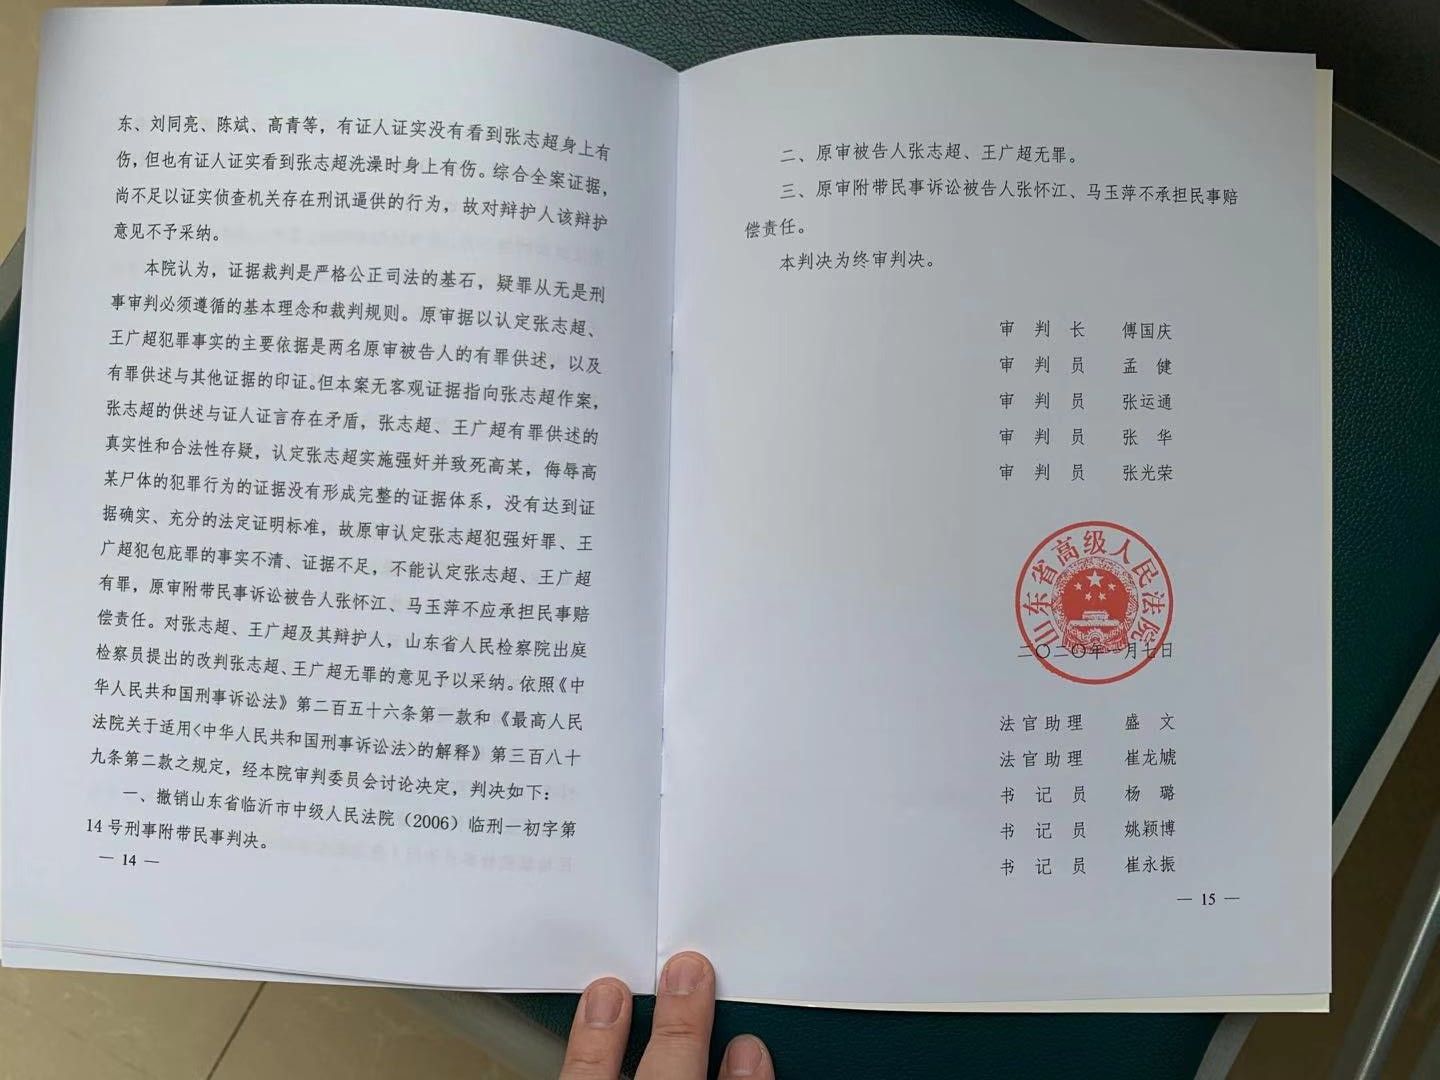 东、刘同亮、陈斌、高青等，有证人证实没有看到张志超身上有
伤，但也有证人证实看到张志超洗澡时身上有伤。综合全案证据，
尚不足以证实侦查机关存在刑讯逼供的行为，故对辩护人该辩护
意见不予采纳。
本院认为，证据裁判是严格公正司法的基石，疑罪从无是刑
事审判必须遵循的基本理念和裁判规则。原审据以认定张志超、
王广超犯罪事实的主要依据是两名原审被告人的有罪供述，以及
有罪供述与其他证据的印证。但本案无客观证据指向张志超作案，
张志超的供述与证人证言存在矛盾，张志超、王广超有罪供述的
真实性和合法性存疑，认定张志超实施强奸并致死高某，侮辱高
某尸体的犯罪行为的证据没有形成完整的证据体系，没有达到证
据确实、充分的法定证明标准，故原审认定张志超犯强奸罪、王
广超犯包庇罪的事实不清、证据不足，不能认定张志超、王广超
有罪，原审附带民事诉讼被告人张怀江、马玉萍不应承担民事赔
偿责任。对张志超、王广超及其辩护人，山东省人民检察院出庭
检察员提出的改判张志超、王广超无罪的意见予以采纳。依照《中
华人民共和国刑事诉讼法》第二百五十六条第一款和《最高人民
法院关于适用<中华人民共和国刑事诉讼法>的解释》第三百八十
九条第二款之规定，经本院审判委员会讨论决定，判决如下：
一、撤销山东省临沂市中级人民法院（2006）临刑一初字第
14号刑事附带民事判决。
— 14 —
二、原审被告人张志超、王广超无罪。
三、原审附带民事诉讼被告人张怀江、马玉萍不承担民事赔
偿责任。
本判决为终审判决。
审 判 长 傅国庆
审 判 员 孟 健
审 判 员 张运通
审 判 员 张 华
审 判 员 张光荣
山东省高级人民法院
二〇二〇年 月七日
法官助理 盛 文
法官助理 崔龙虓
书 记 员 杨 璐
书 记 员 姚颖博
书 记 员 崔永振
— 15 —